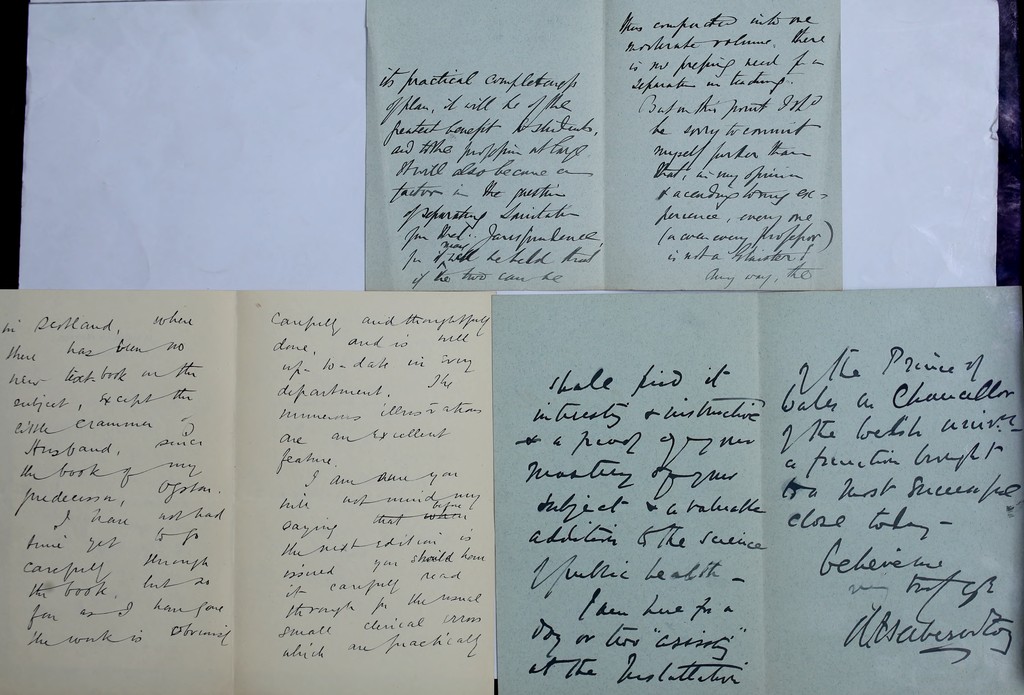 its practical completeness
of plan, it will be of the
greatest benefit to students,
and to the profession at large.
It will also become a
factor in the question
of separating Sanitation
from Med. Jurisprudence,
for it may well be held that
if the two can be
thus compacted into one
moderate volume, there
is no pressing need for
separation in teaching.
But on this point I shd
be sorry to commit
myself further than
that, in my opinion
& according to my ex=
perience, every one
(or even every Professor)
is not a
Any way, the
in Scotland, where
there has been no
new text-book on the
subject, except the
little crammer of
Husband, since
the book of my
predecessor, Ogston.
I have not had
time yet to go
carefully through
the book, but so
far as I have gone
the work is obviously
carefully and thoughtfully
done, and is well
up-to-date in every
department. The
numerous illustrations
are an excellent
feature.
I am sure you
will not mind my
saying that when before
the next edition is
issued you should have
it carefully read
through for the usual
small clerical errors
which are practically
shall find it
interesting & instructive
& a proof of your
mastery of your
subject & a valuable
addition to the science
of public health –
I am here for a
day or two "assisting"
at the Installation
of the Prince of
Wales as Chancellor
of the Welsh Univer.
a function brought
to a most successful
close today –
believe me
very truly yrs